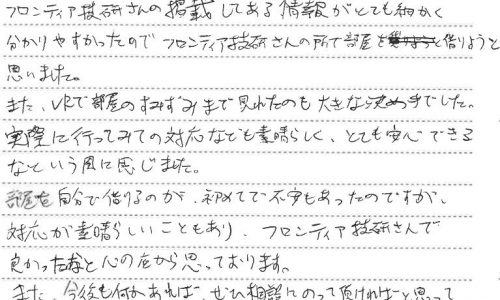 フロンティア技研さんの掲載してある情報がとても細かく
分かりやすかったのでフロンティア技研さんの所で部屋を借りようと
思いました。
また、VRで部屋のすみずみまで見れたのも大きな決め手でした。
実際に行ってみての対応なども素晴らしく、とても安心できる
なという風に感じました。
部屋を自分で借りるのが、初めてで不安もあったのですが、
対応が素晴らしいこともあり、フロンティア技研さんで
良かったなと心の底から思っております。
また、今後も何かあれば、ぜひ相談にのって頂ければと思って